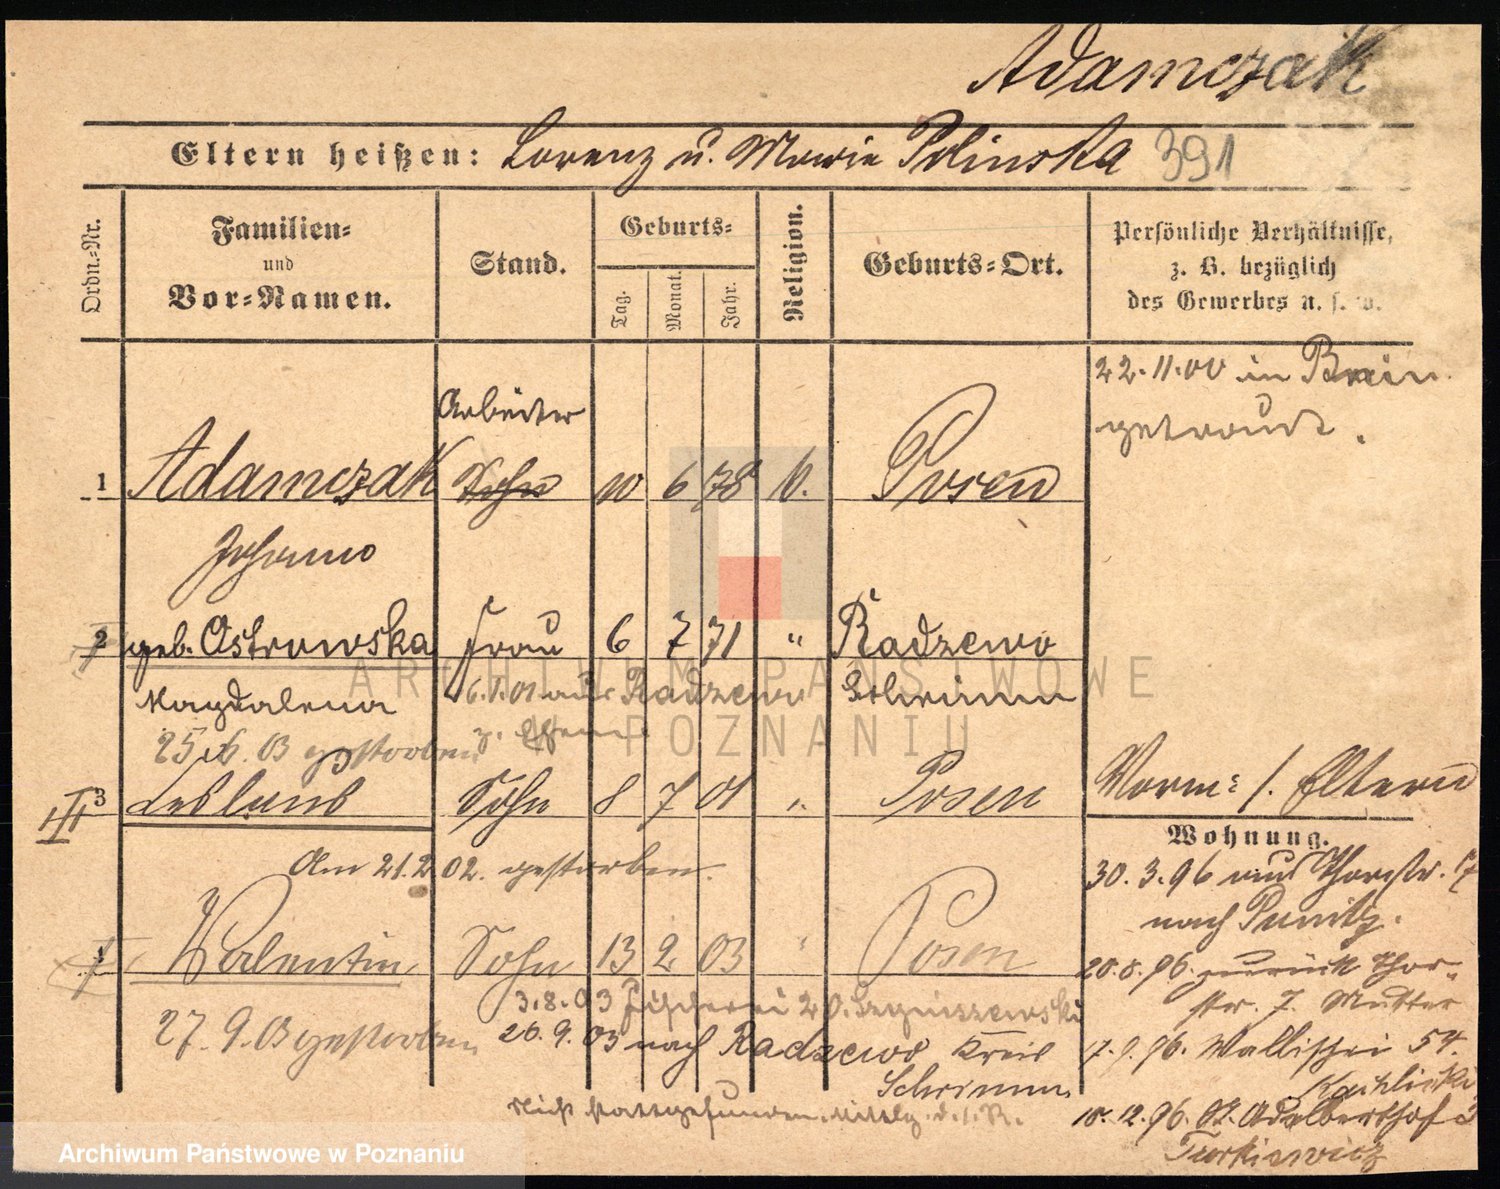 Adamczak
Eltern heißen: Lorenz u. Marie Polinska 391
Ordn.-Nr.
Familien-
und
Vor-Namen.
Stand.
Geburts-
Tag.
Monat.
Jahr.
Religion.
Geburts-Ort.
Persönliche Verhältnisse,
z. B. bezüglich
des Gewerbes u. s. w.
22.11.00 in
getraut.
Arbeiter
1 Adamczak Sohn 10 6 78 k. Posen
Johann
2 geb. Ostrowska Frau 6 7 71 " Radzewo
Magdalena 6.1.01 aus Radzewo Schrimm
25.6.03 gestorben z.
3 Ladislaus Sohn 8 7 01 " Posen
III
Vorm: s. Eltern
Am 21.2 02. gestorben.
Wohnung.
30.3.96 aus Thorstr. 7
nach Punitz.
Valentin Sohn 13 2 03 " Posen
20.8.96. zurück Thor-
str. 7. Mutter
3.8.03 Fischerei 20. Szymiszewski
27.9.03 gestorben
26.9.03 nach Radzewo Kreis
Schrimm
17.9.96. Wallischei 54.
nicht stattgefunden. Mittlg. d. . R.
10.12.96. St. Adalberthof 3
Turkiewicz
ARCHIWUM PAŃSTWOWE
W POZNANIU
Archiwum Państwowe w Poznaniu